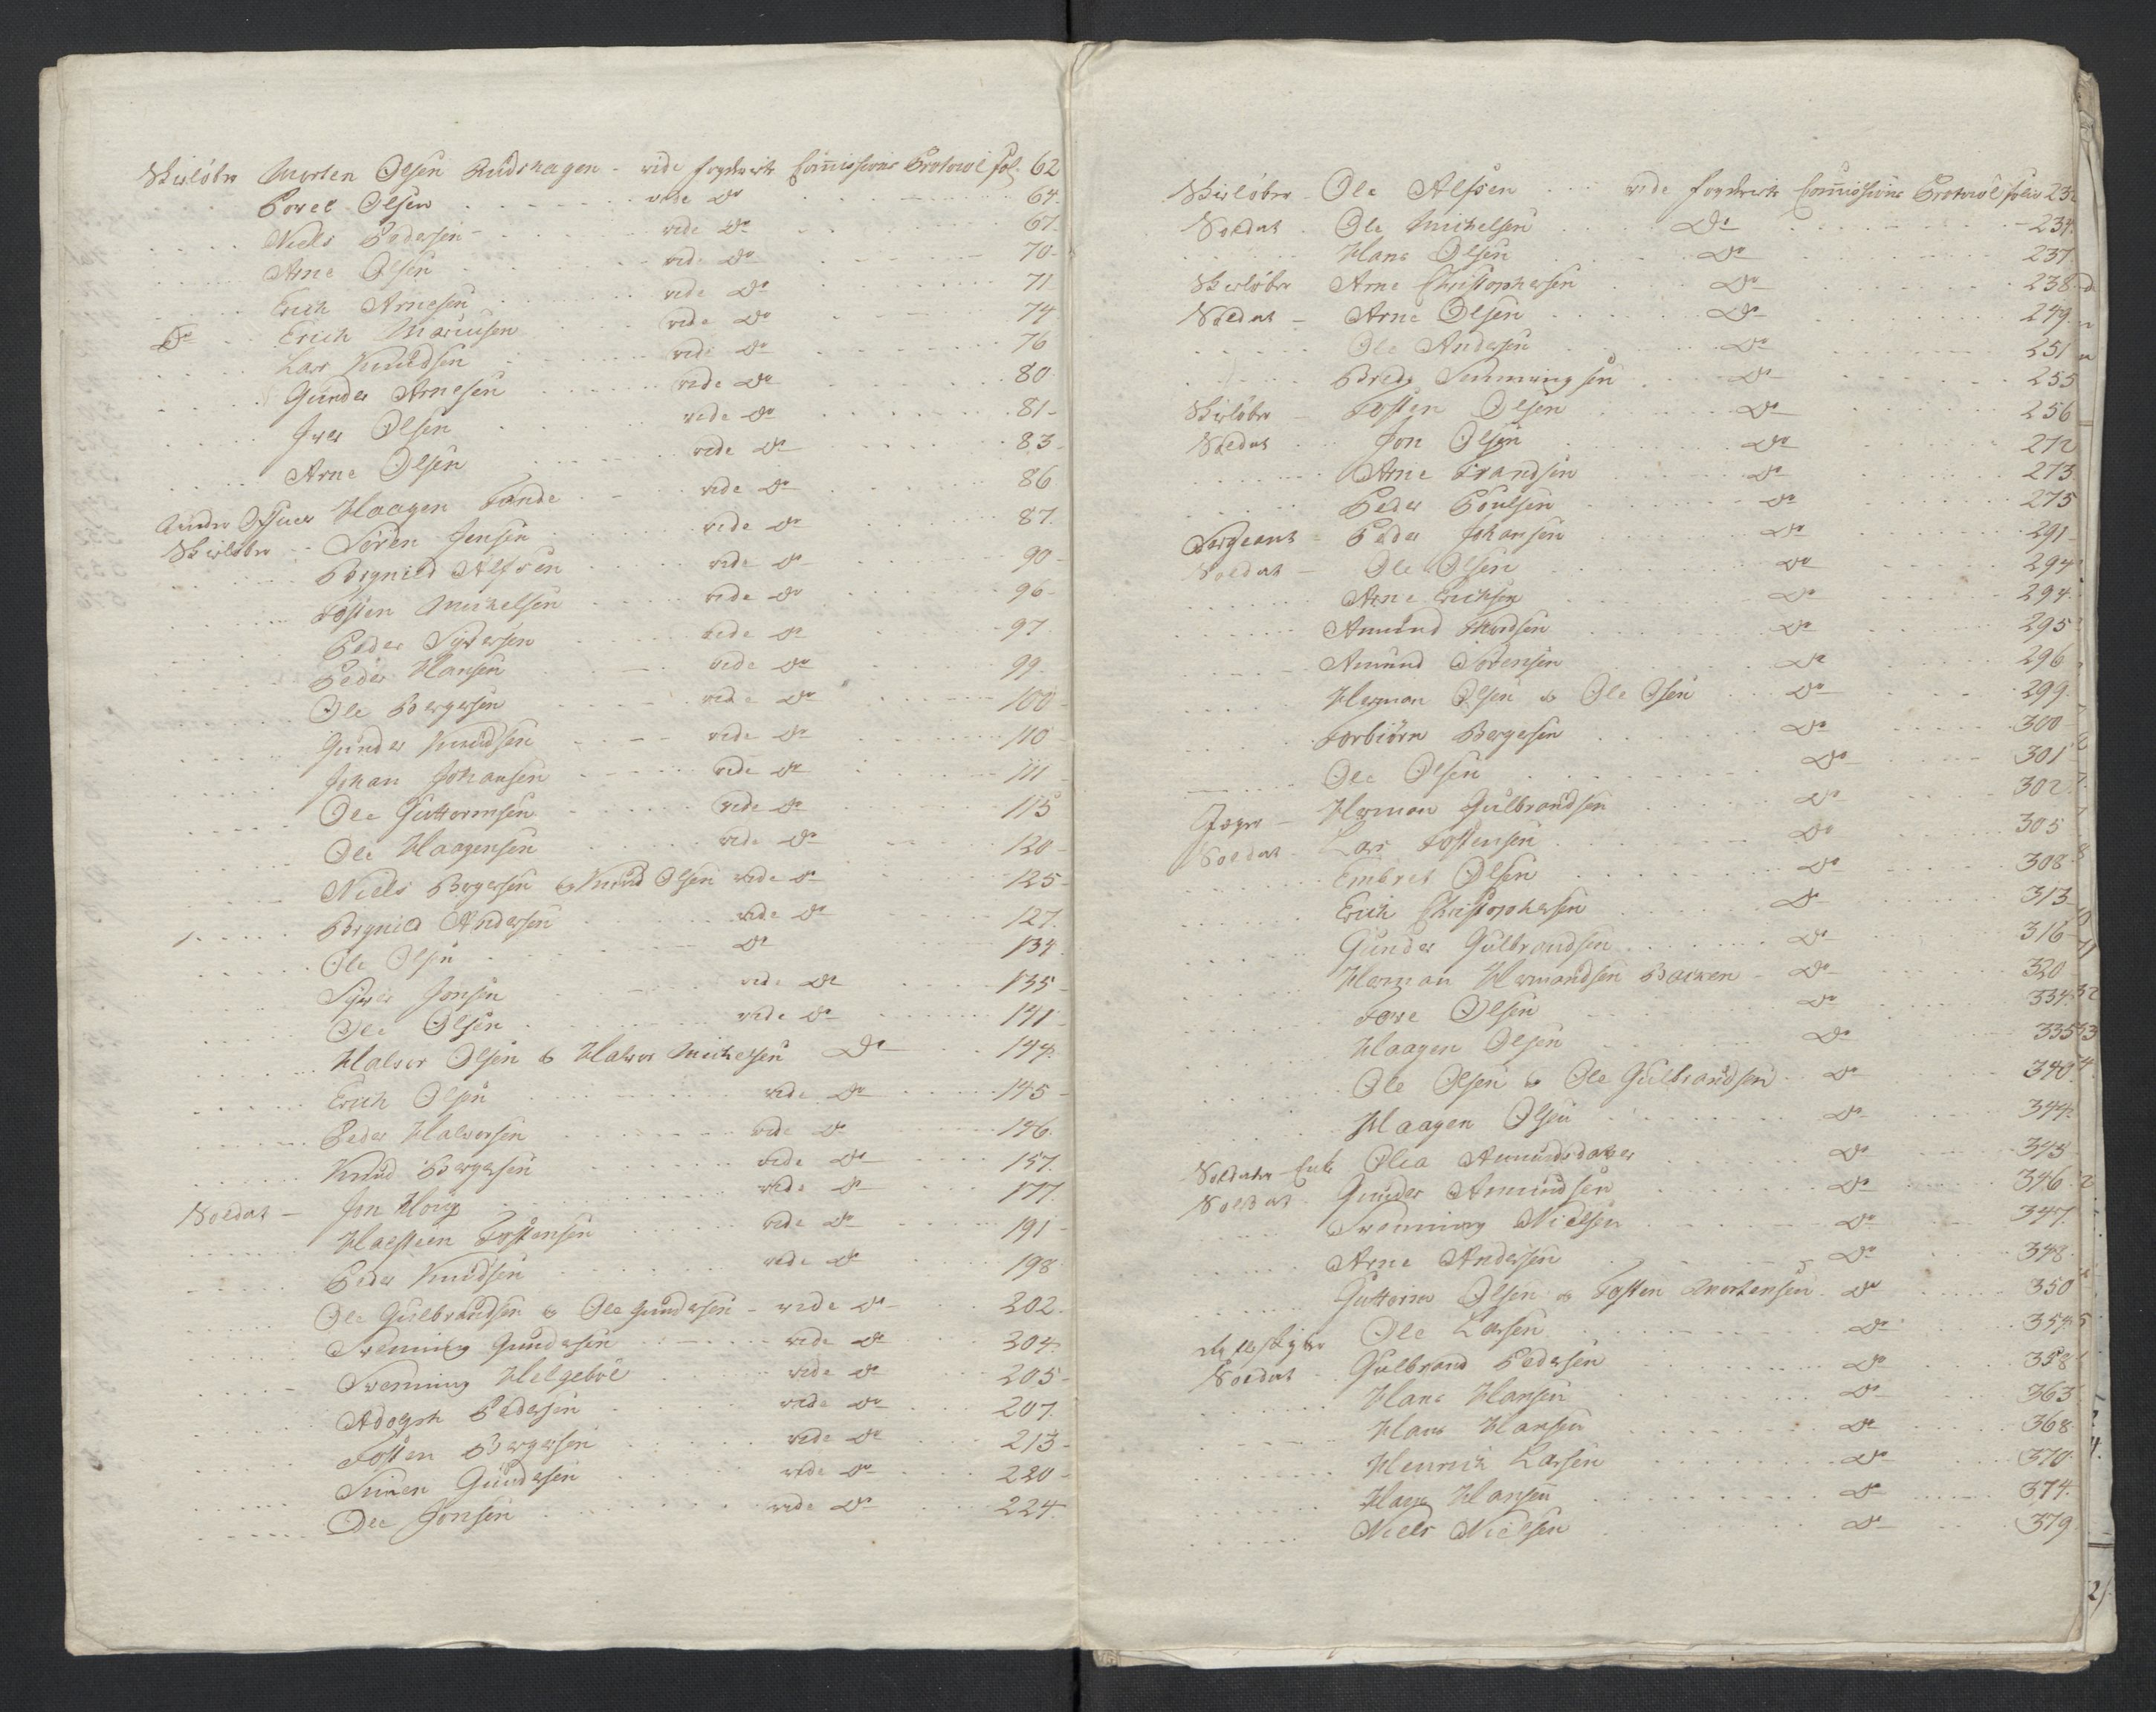 Skiløber Morten Olsen Rudshagen - vide Commissions Protocol fol. 62
Povel Olsen vide Do 64.
Niels Pedersen vide Do 67.
Arne Olsen vide Do 70-
Erich Arnesen vide Do 71
Do Erich vide Do 74
Lars Knudsen vide Do 76
Gunder Arnesen vide Do 80
Iver Olsen vide Do 81-
Arne Olsen vide Do 83-
Under Officer Haagen Tande vide Do 86
Skiløber Sören Jensen vide Do 87.
Brynild Alfsen vide Do 90-
Tosten Michelsen vide Do 96-
Peder Syversen vide Do 97
Peder Hansen vide Do 99.
Ole Bergersen vide Do 100-
Gunder Knudsen vide Do 110
Johan Johansen vide Do 111-
Ole Guttormsen vide Do 115
Ole Haagensen vide Do 120-
Niels Bergersen & Knud Olsen vide Do 125-
Brynild Andersen vide Do 127.
Ole Olsen Do 134
Syver Jonsen vide Do 135-
Ole Olsen vide Do 141-
Halvor Olsen & Halvor Michelsen Do 144.
Erich Olsen vide Do 145-
Peder Halvorsen vide Do 146.
Knud Bergersen vide Do 157.
Soldat - Jon Houg vide Do 177.
Halsteen Tostensen vide Do 191-
Peder Knudsen vide Do 198
Ole Gulbrandsen & Ole Gundersen - vide Do 202.
Svenning Gundersen vide Do 204.
Svenning Helgeböe vide Do 205-
Adolph Pedersen vide Do 207.
Tosten Bergersen vide Do 213-
Simen Gundersen vide Do 220-
Ole Jonsen vide Do 224.
Skiløber Ole Alfsen vide Commissions Protocol folio 23
Soldat Ole Michelsen Do 234.
Hans Olsen Do 237.
Skiløber Arne Christophersen Do 238.
Soldat - Arne Olsen Do 249.
Ole Andersen Do 251
Brede Do 255
Skiløber - Tosten Olsen Do 256
Soldat Jon Olsen Do 272
Arne Do 273.
Peder Poulsen Do 275
Sergeant - Peder Johansen Do 291-
Soldat - Ole Olsen Do 294
Arne Erichsen Do 294.
Amund Do 295
Amund Sörensen Do 296
Herman Olsen & Ole Do 299.
Torbiörn Bergersen Do 300-
Ole Olsen Do 301
Jæger - Herman Gulbrandsen Do 302.
Soldat - Lars Tostensen Do 305
Embret Olsen Do 308
Erich Christophersen Do 313
Gunder Gulbrandsen Do 316
Herman Hermandsen Backen - Do 320
Tore Olsen Do 334.
Haagen Olsen Do 335
Ole Olsen & Ole Gulbrandsen Do 340.
Haagen Olsen Do 344.
Soldater Enke Olia Amundsdatter Do 345
Soldat Gunder Amundsen Do 346
Svenning Nielsen Do 347.
Arne Andersen Do 348
Guttorm Olsen & Tosten Mortensen Do 350
Ole Larsen Do 354.
Soldat Gulbrand Pedersen Do 358
Hans Hansen Do 363
Hans Hansen Do 368
Henrich Larsen Do 370.
Hans Hansen Do 374.
Niels Nielsen Do 379